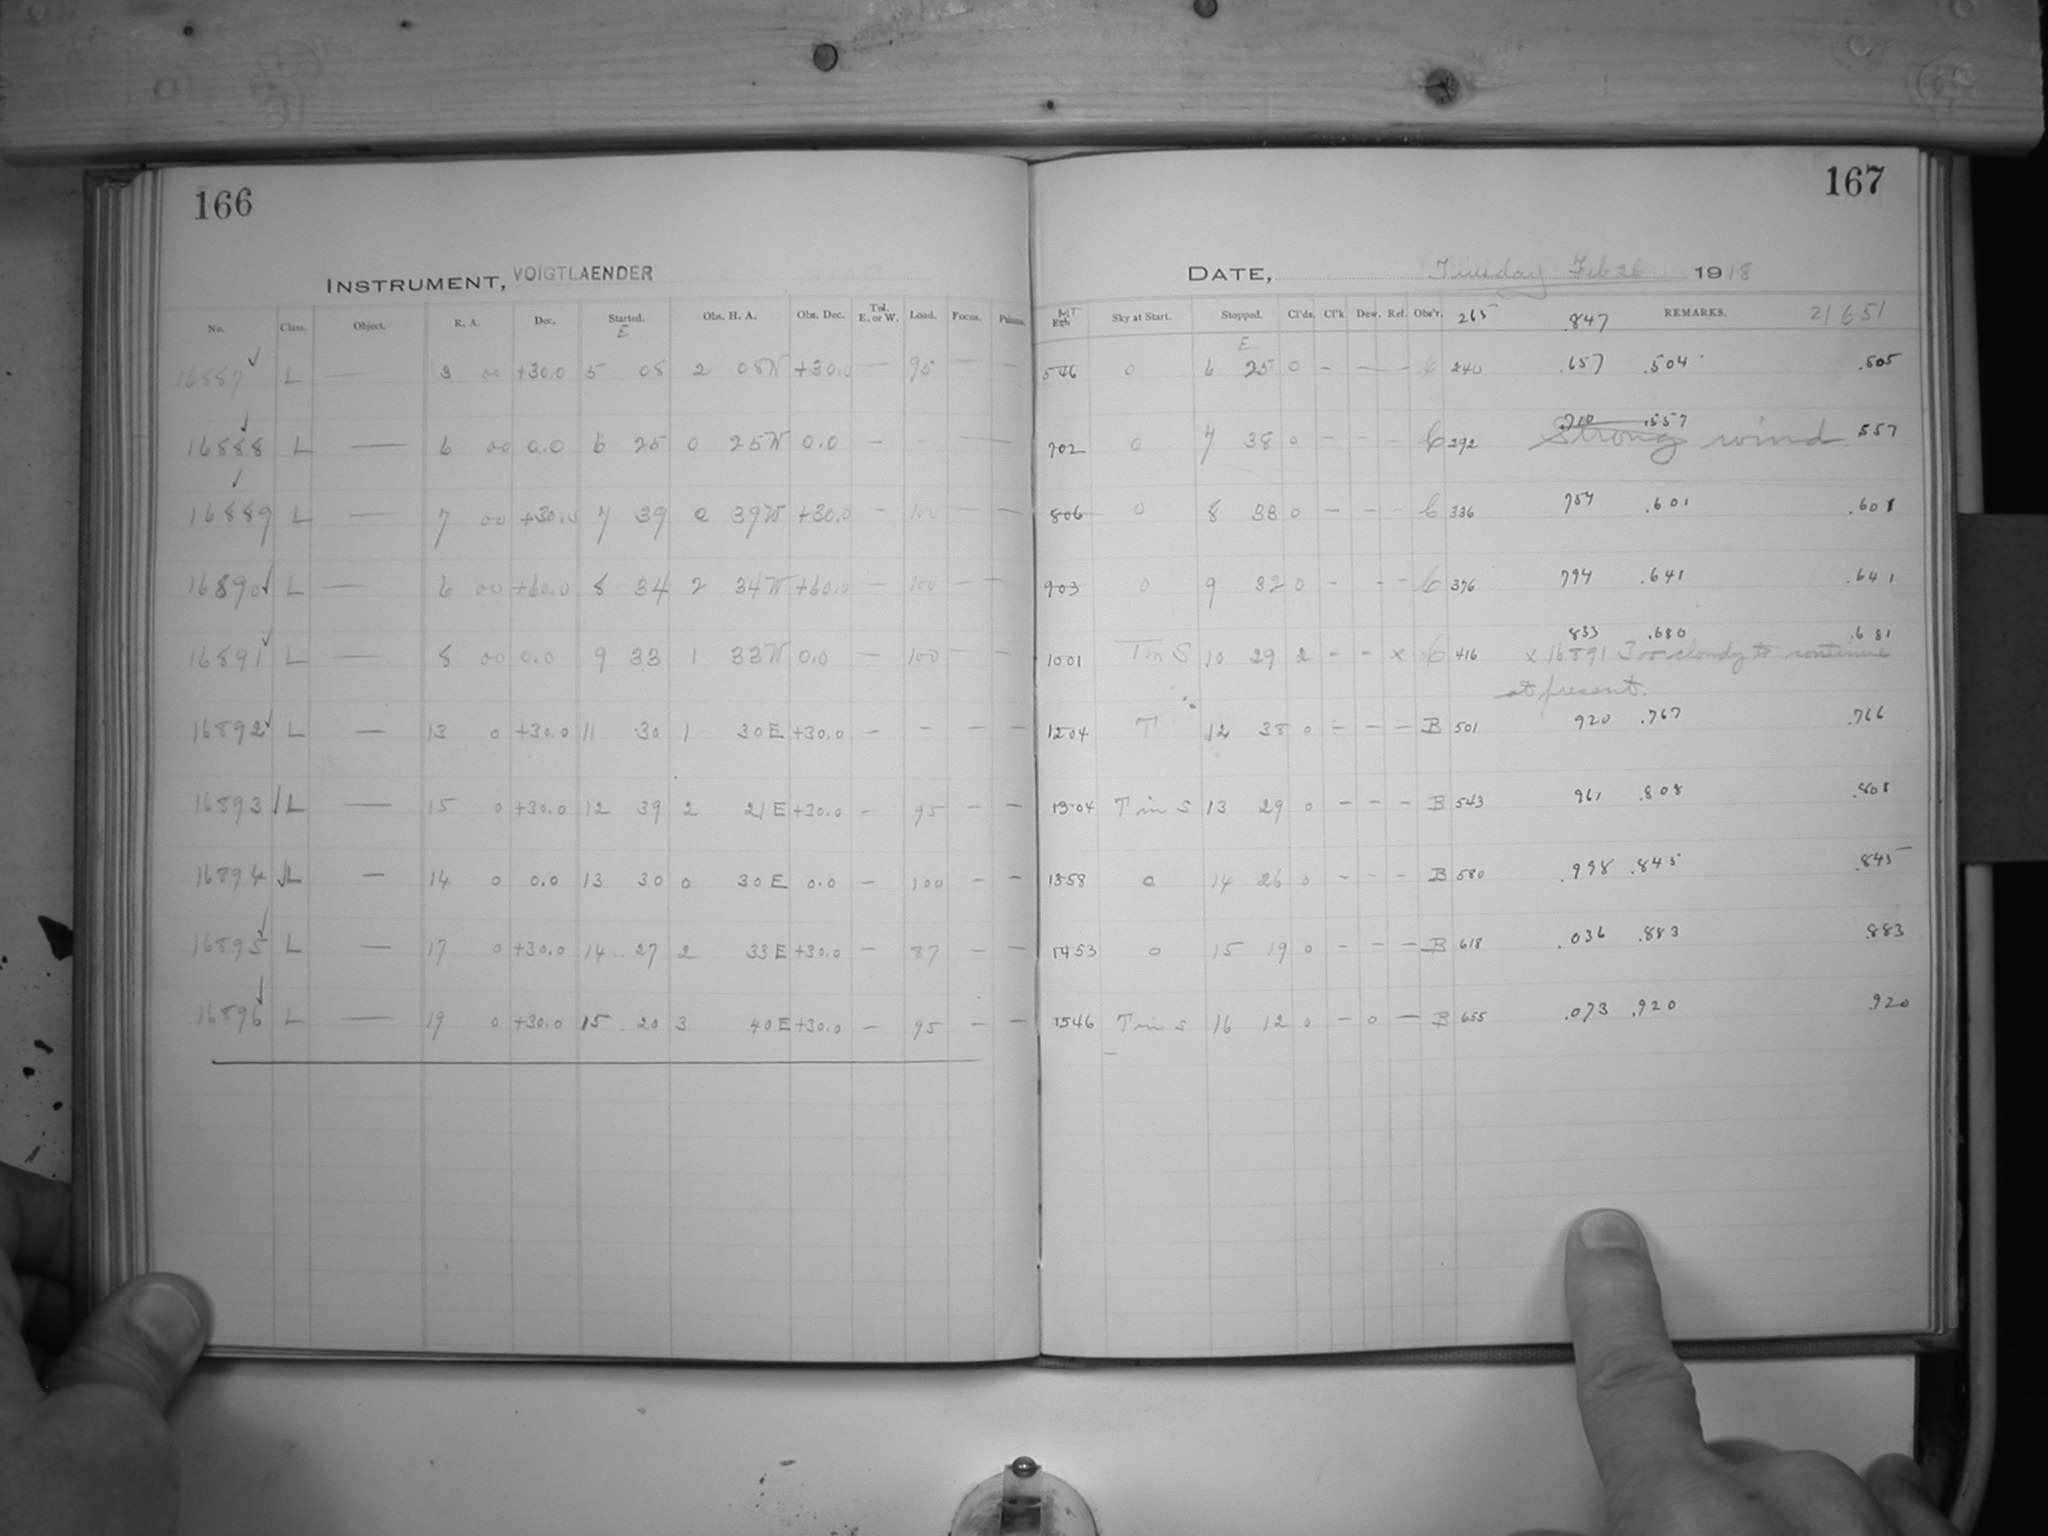 166
INSTRUMENT, VOIGTLAENDER
No. Class. Object. R. A. Dec. Started. Obs. H. A. Obs. Dec. Tel. E. or W. Load. Focus.
E
16887 ✓ L — 3 00 +30.0 5 08 2 08W +30.0 — 95 — —
16888 ✓ L — 6 00 0.0 6 25 0 25W 0.0 — — — —
16889 ✓ L — 7 00 +30.0 7 39 0 39W +30.0 — 100 — —
16890 ✓ L — 6 00 +60.0 8 34 2 34W +60.0 — 100 — —
16891 ✓ L — 8 00 0.0 9 33 1 33W 0.0 — 100 — —
16892 ✓ L — 13 0 +30.0 11 30 1 30E +30.0 — — — —
16893 ✓ L — 15 0 +30.0 12 39 2 21E +30.0 — 95 — —
16894 ✓ L — 14 0 0.0 13 30 0 30E 0.0 — 100 — —
16895 ✓ L — 17 0 +30.0 14 27 2 33E +30.0 — 87 — —
16896 ✓ L — 19 0 +30.0 15 20 3 40E +30.0 — 95 — —
167
DATE, Tuesday Feb 26 1918
MT Sky at Start. Stopped. Cl'ds. Cl'k Dew. Ref. Obs'r. 265 .847 REMARKS. 21651
E
546 0 6 25 0 - — - C 240 .657 .504 .505
702 0 7 38 0 - - - C 292 .710 .557 Strong wind .557
806 0 8 33 0 - - - C 336 754 .601 .601
903 0 9 32 0 - - - C 376 794 .641 .641
833 .680 .681
1001 T in S 10 29 2 - - x C 416 x 16891 Too cloudy to continue
at present.
1204 T 12 38 0 - - - B 501 920 .767 .766
1304 T in S 13 29 0 - - - B 543 961 .808 .808
1358 0 14 26 0 - - - B 580 .998 .845 .845
1453 0 15 19 0 - - — B 618 .036 .883 .883
1546 T in S 16 12 0 - 0 — B 655 .073 .920 .920